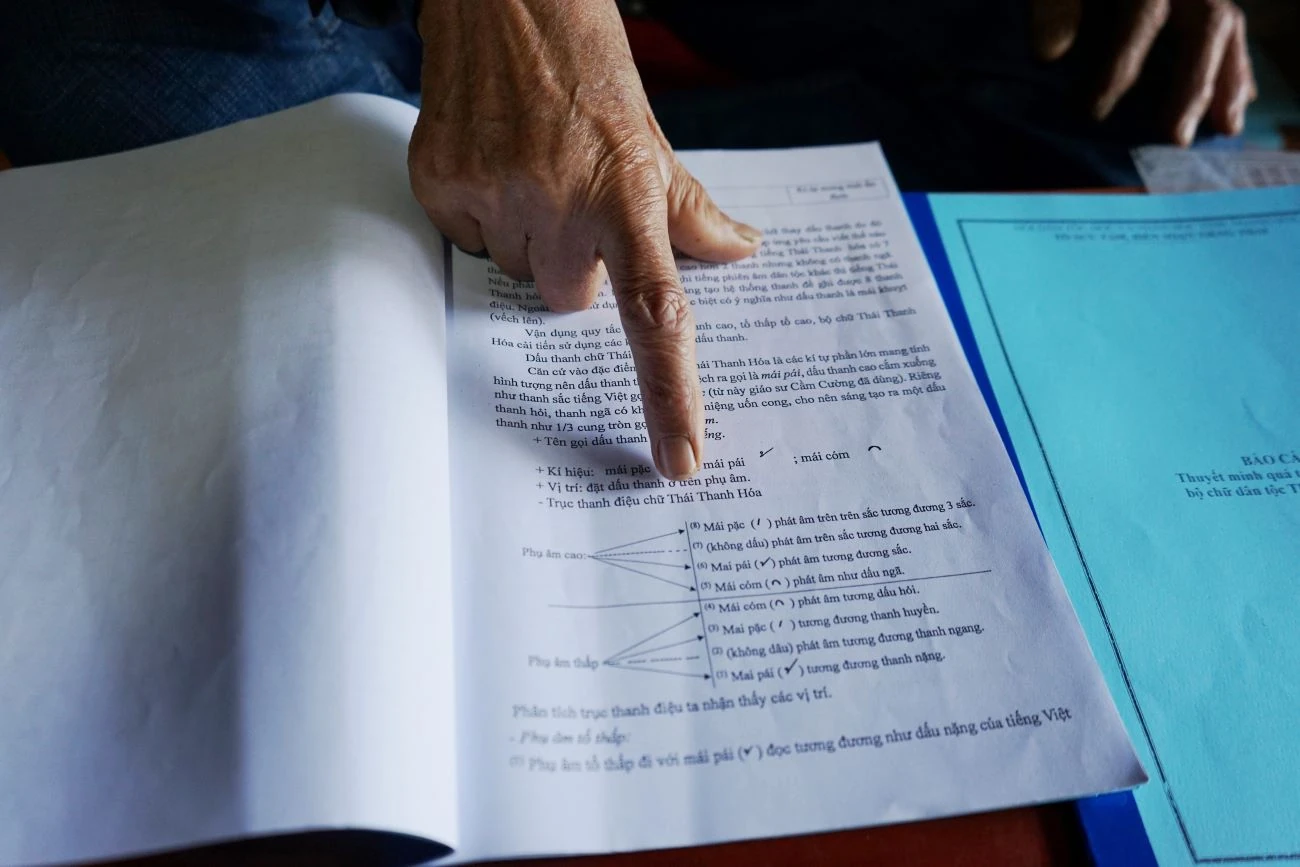 thay dấu thanh do đó
ứng yêu cầu viết thể nào
tiếng Thái Thanh hóa có 7
cao hơn 2 thanh nhưng không có thanh ngã.
ghi tiếng phiên âm dân tộc khác thì tiếng Thái
Nếu phải tạo hệ thống thanh để ghi được 8 thanh
Thanh biệt có ý nghĩa như dấu thanh là mái khuyt
điệu. Ngoài
(vếch lên).
Vận dụng quy tắc thanh cao, tổ thấp tổ cao, bộ chữ Thái Thanh
Hóa cải tiến sử dụng các dấu thanh.
Dấu thanh chữ Thái
Căn cứ vào đặc điểm Thái Thanh Hóa là các kí tự phần lớn mang tính
hình tượng nên dấu thanh ra gọi là mái pái, dấu thanh cao cắm xuống
như thanh sắc tiếng Việt (từ này giáo sư Cầm Cường đã dùng). Riêng
thanh hỏi, thanh ngã có miệng uốn cong, cho nên sáng tạo ra một dấu
thanh như 1/3 cung tròn
+ Tên gọi dấu thanh
+ Kí hiệu: mái pặc mái pái ✓ ; mái cóm ᴖ
+ Vị trí: đặt dấu thanh ở trên phụ âm.
- Trục thanh điệu chữ Thái Thanh Hóa
(8) Mái pặc ( ′ ) phát âm trên trên sắc tương đương 3 sắc.
(7) (không dấu) phát âm trên sắc tương đương hai sắc.
Phụ âm cao:
(6) Mai pái (✓) phát âm tương đương sắc.
(5) Mái cóm (ᴖ ) phát âm như dấu ngã.
(4) Mái cóm (ᴖ ) phát âm tương dấu hỏi.
(3) Mai pặc ( ′ ) tương đương thanh huyền.
(2) (không dâu) phát âm tương đương thanh ngang.
Phụ âm thấp
(1) Mai pái (✓) tương đương thanh nặng.
Phân tích trục thanh điệu ta nhận thấy các vị trí.
- Phụ âm tổ thấp:
(1) Phụ âm tổ thấp đi với mái pái (✓ ) đọc tương đương như dấu nặng của tiếng Việt
BÁO CÁ
Thuyết minh quá t
bộ chữ dân tộc T